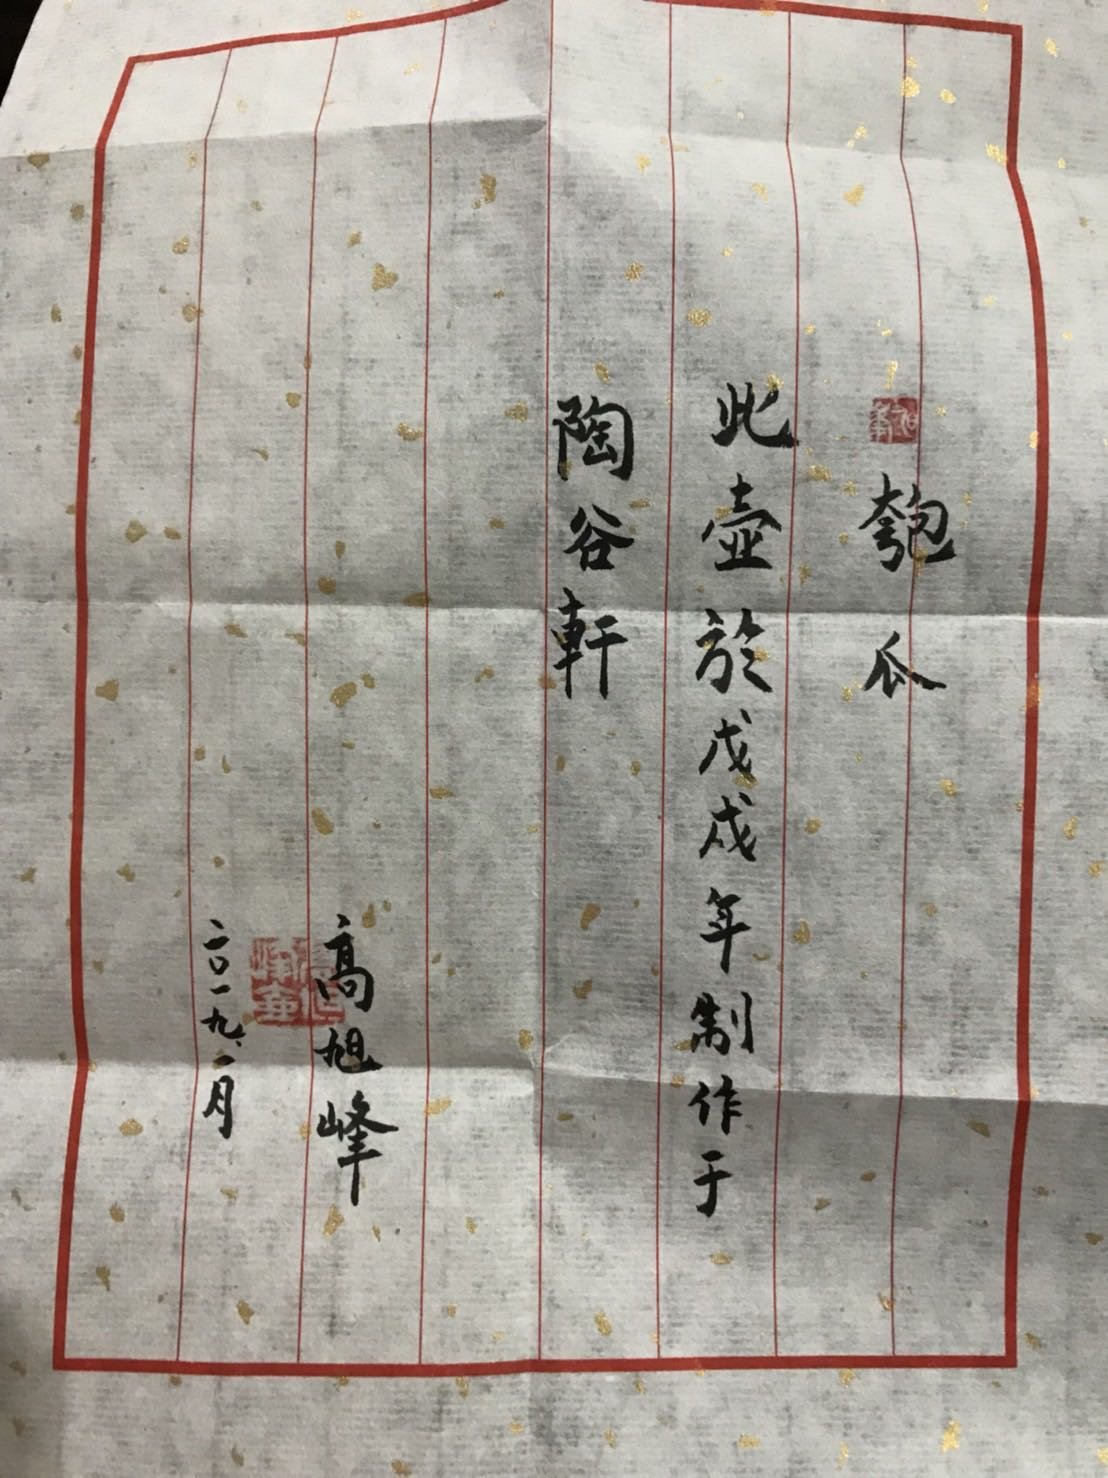 匏瓜
此壺於戊戌年制作于
陶谷軒
高旭峰
二〇一九.一月